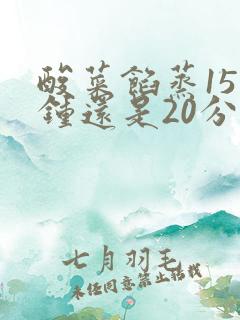 酸菜餡蒸15
鍾還是20分
七月羽毛
未经同意禁止转载